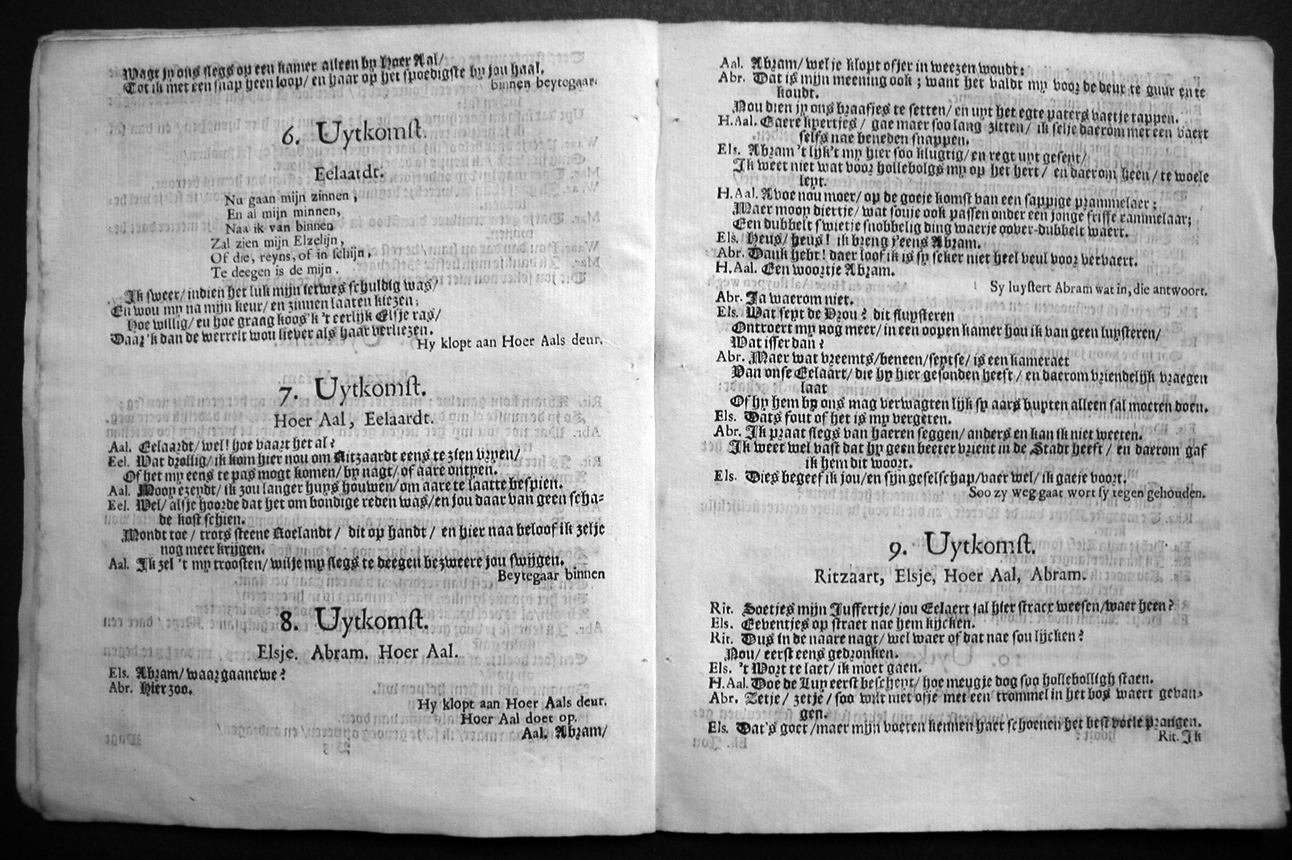 Wagt jy ons slegs op een kamer alleen by Hoer Aal/
Tot ik met een snap heen loop/ en haar op het spoedigste by jou haal.
binnen beytegaar.
6. Uytkomst.
Eelaardt.
Nu gaan mijn zinnen,
En al mijn minnen,
Naa ik van binnen
Zal zien mijn Elzelijn,
Of die, reyns, of in schijn,
Te deegen is de mijn.
Ik sweer/ indien het luk mijn ietwes schuldig was/
En wou my na mijn keur/ en zinnen laaten kiezen;
Hoe willig/ en hoe graag koos'k 't eerlijk Elsje ras/
Daar'k dan de werrelt wou liever als haar verliezen.
Hy klopt aan Hoer Aals deur.
7. Uytkomst.
Hoer Aal, Eelaardt.
Aal. Eelaardt/ wel! hoe vaart het al?
Eel. Wat drollig/ ik kom hier nou om Ritzaardt eens te zien vryen/
Of het my eens te pas mogt komen/ by nagt/ of aare ontyen.
Aal. Mooy ezeydt/ ik zou langer huys houwen/ om aare te laatte bespien.
Eel. Wel/ alsje hoorde dat het om bondige reden was/ en jou daar van geen scha-
de kost schien.
Mondt toe/ trots steene Roelandt/ dit op handt/ en hier naa beloof ik zelje
nog meer krijgen.
Aal. Ik zel 't my troosten/ wilje my slegs te deegen bezweere jou swijgen.
Beytegaar binnen
8. Uytkomst.
Elsje. Abram. Hoer Aal.
Els. Abram/ waar gaanewe?
Abr. Hier zoo.
Hy klopt aan Hoer Aals deur.
Hoer Aal doet op.
Aal. Abram/
Aal. Abram/ wel je klopt ofjer in weezen woudt:
Abr. Dat is mijn meening ook; want het valdt my voor de deur te guur en te
koudt.
Nou dien jy ons braafjes te setten/ en uyt het egte paters vaetje tappen.
H. Aal. Gaere kyertjes/ gae maer soo lang zitten/ ik selje daerom met een vaert
selfs nae beneden snappen.
Els. Abram 't lijk't my hier soo klugtig/ en regt uyt geseyt/
Ik weet niet wat voor hollebolgs my op het hert/ en daerom heen/ te woele
leyt.
H. Aal. Avoe nou moer/ op de goeje komst van een sappige prammelaer:
Maer mooy diertje/ wat souje ook passen onder een jonge frisse rammelaar;
Een dubbelt swietje snobbelig ding waerje oover-dubbelt waert.
Els. Heus/ heus! ik breng y'eens Abram.
Abr. Dank hebt! daer loof ik is sy seker niet heel veul voor vervaert.
H. Aal. Een woortje Abram.
Sy luystert Abram wat in, die antwoort.
Abr. Ja waerom niet.
Els. Wat seyt de Vrou? dit fluysteren
Ontroert my nog meer/ in een oopen kamer hou ik van geen luysteren/
Wat isser dan?
Abr. Maer wat vreemts/ beneen/ seytse/ is een kameraet
Van onse Eelaart/ die hy hier gesonden heeft/ en daerom vriendelijk vraegen
laat
Of hy hem by ons mag verwagten lijk sy aars buyten alleen sal moeten doen.
Els. Dats fout of het is my vergeten.
Abr. Ik praat slegs van haeren seggen/ anders en kan ik niet weeten.
Ik weet wel vast dat hy geen beeter vrient in de Stadt heeft/ en daerom gaf
ik hem dit woort.
Els. Dies begeef ik jou/ en sijn geselschap/ vaer wel/ ik gaeje voort.
Soo zy weg gaat wort sy tegen gehouden.
9. Uytkomst.
Ritzaart, Elsje, Hoer Aal, Abram.
Rit. Soetjes mijn Juffertje/ jou Eelaert sal hier stracx weesen/ waer heen?
Els. Eeventjes op straet nae hem kijcken.
Rit. Dus in de naare nagt/ wel waer of dat nae sou lijcken?
Nou/ eerst eens gedronken.
Els. 't Wort te laet/ ik moet gaen.
H. Aal. Doe de Luy eerst bescheyt/ hoe meugje dog soo holleboll​igh staen.
Abr. Zetje/ zetje/ soo wilt niet ofje met een trommel in het bos waert gevan-
gen.
Els. Dat's goet/ maer mijn voeten kennen haer schoenen het best voele prangen.
Rit. Ik